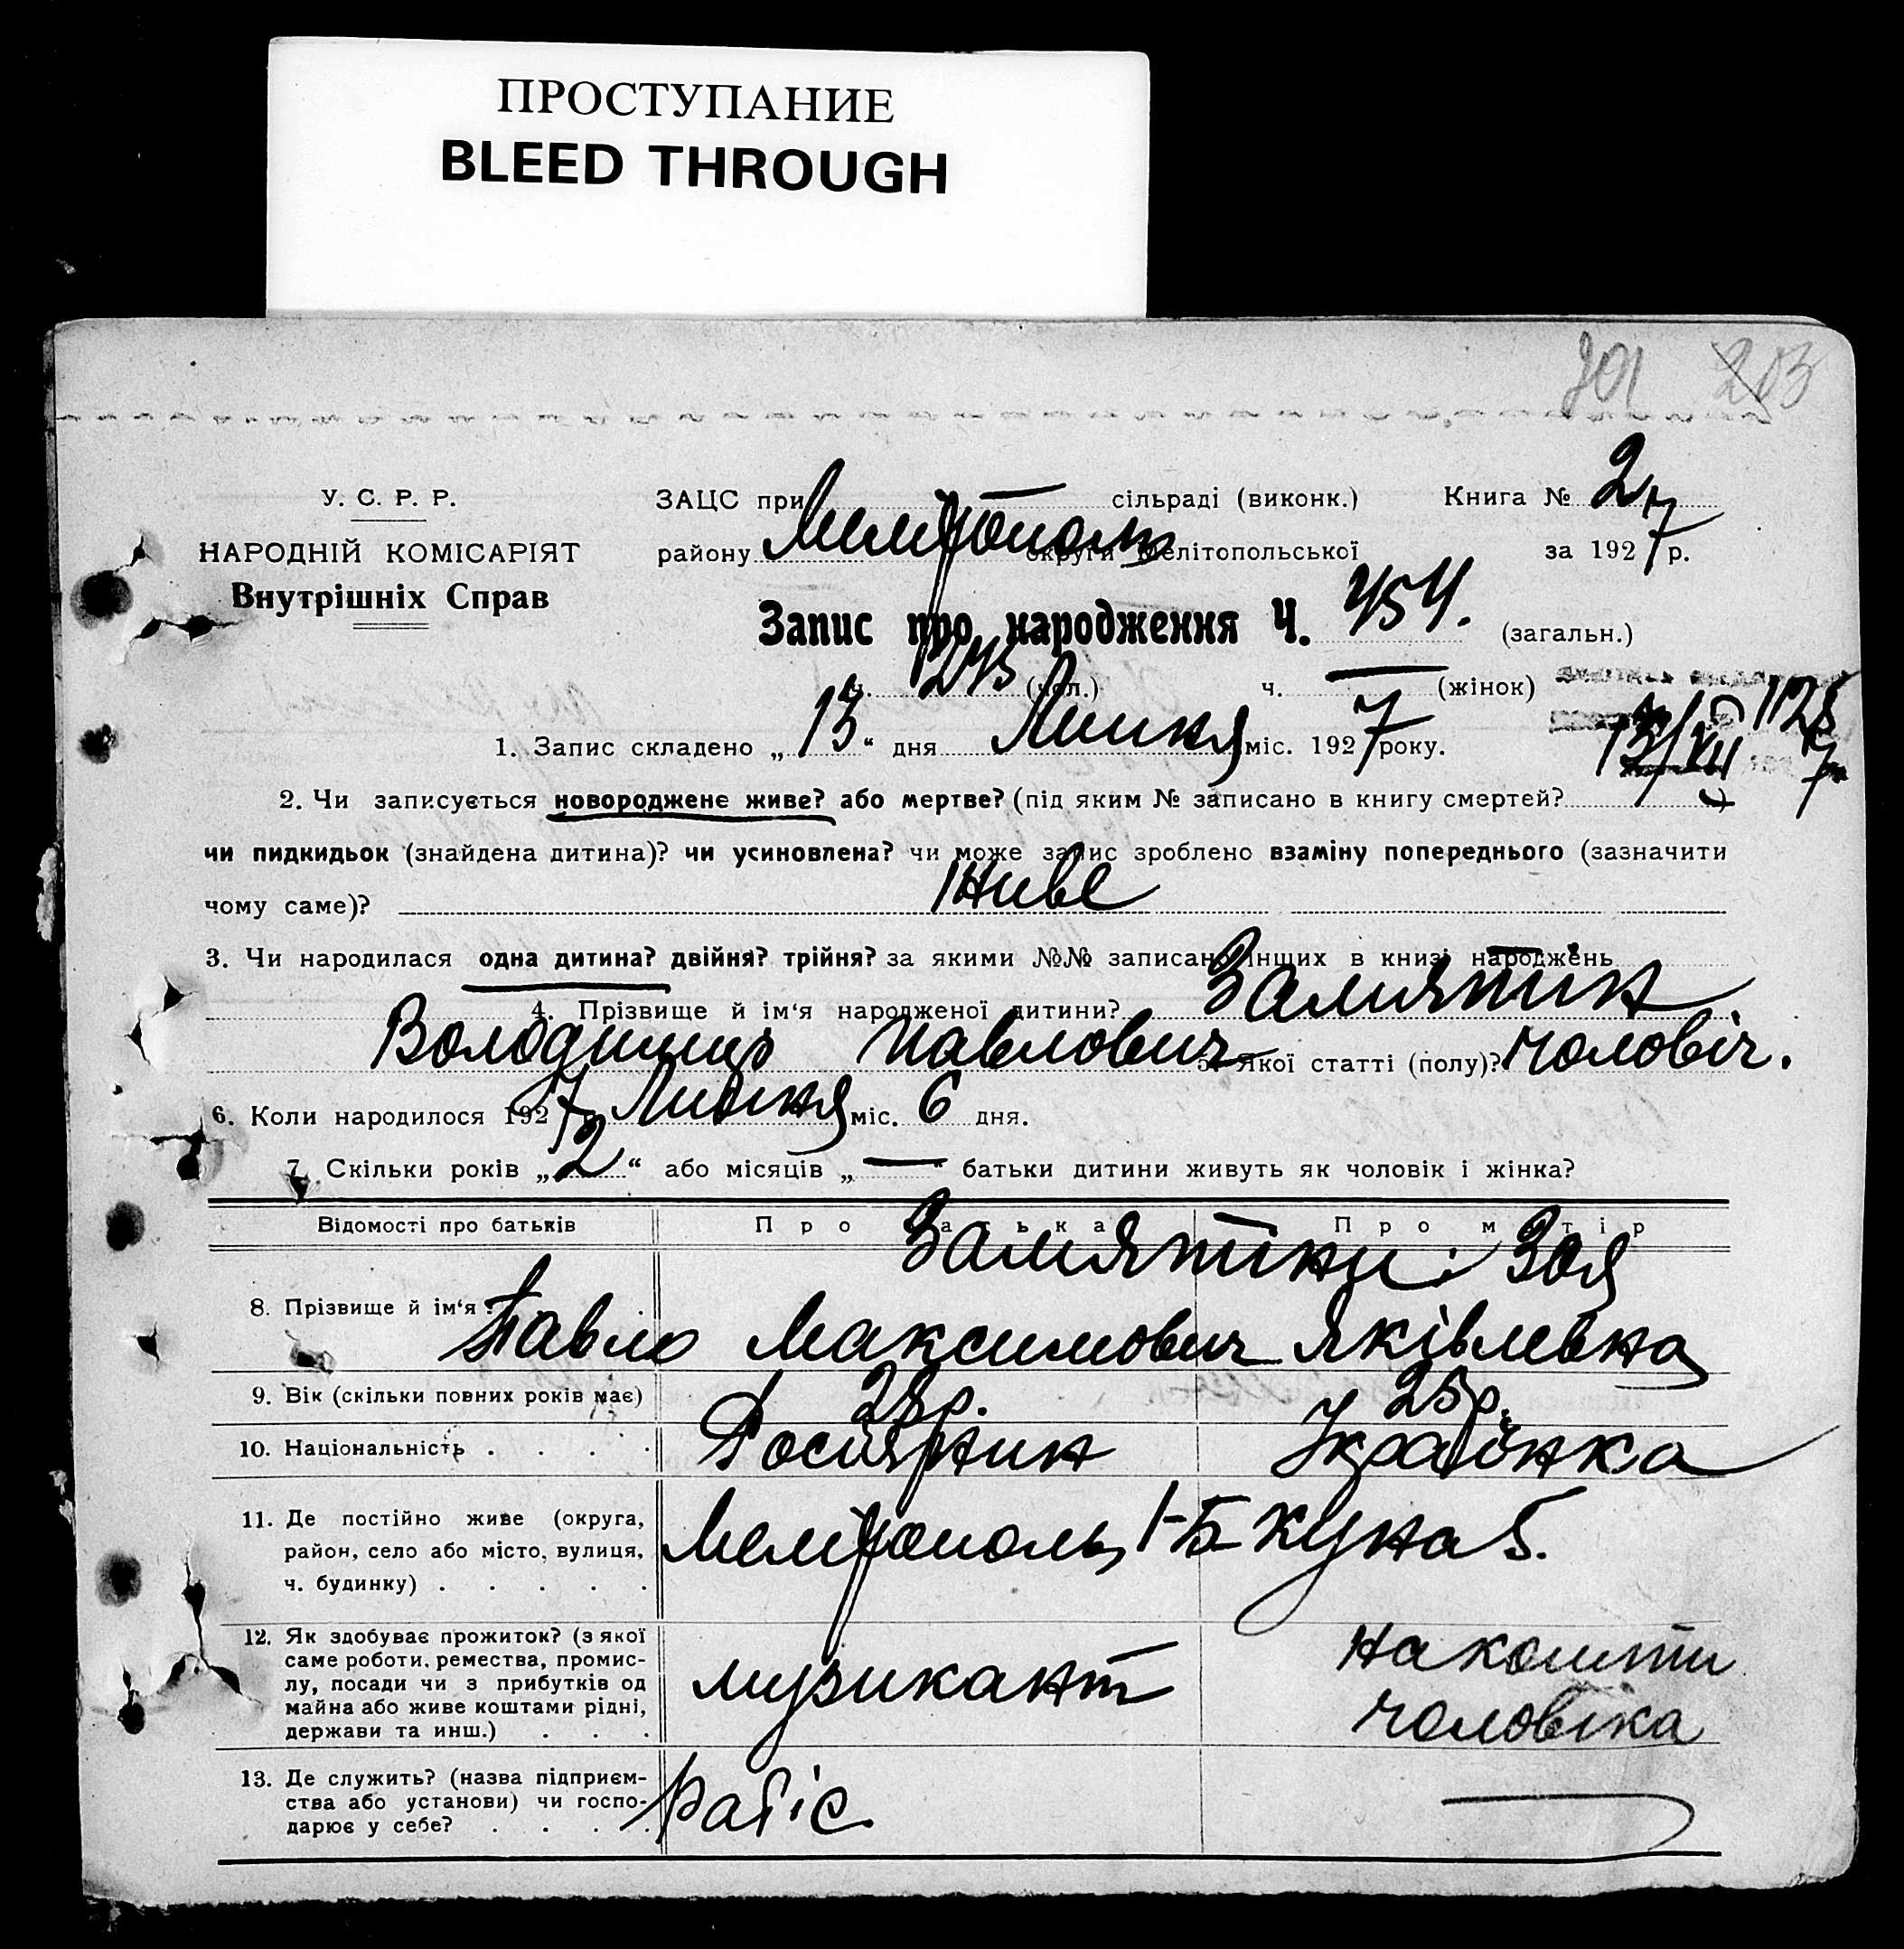 ПРОСТУПАНИЕ
BLEED THROUGH
201 203
У. С. Р. Р.
НАРОДНІЙ КОМІСАРІЯТ
Внутрішніх Справ
ЗАЦС при — сільраді (виконк.) Книга № 2
району Мелітополь округи Мелітопольської за 1927 р.
Запис про народження Ч. 454. (загальн.)
ч. 243 (чол.) ч. — (жінок)
1. Запис складено „13“ дня Липня міс. 1927 року.
13/VII 7
2. Чи записується новороджене живе? або мертве? (під яким № записано в книгу смертей?
чи пидкидьок (знайдена дитина)? чи усиновлена? чи може запис зроблено взаміну попереднього (зазначити
чому саме)? Живе
3. Чи народилася одна дитина? двійня? трійня? за якими №№ записано інших в книзі народжень
4. Прізвище й ім'я народженої дитини? Замятин
Володимир Павлович 5. Якої статті (полу)? чоловіч.
6. Коли народилося 1927 р. Липня міс. 6 дня.
7. Скільки років „2“ або місяців „—“ батьки дитини живуть як чоловік і жінка?
Відомості про батьків Про батька Про матір
8. Прізвище й ім'я . . Замятіни: Зоя
Павло Максимович Яківлевна
9. Вік (скільки повних років має) 28 р. 25 р.
10. Національність . . . . . Росіянин Українка
11. Де постійно живе (округа,
район, село або місто, вулиця,
ч. будинку) . . . . .
Мелітополь, 1-Б Куна 5.
12. Як здобуває прожиток? (з якої
саме роботи, ремества, промис-
лу, посади чи з прибутків од
майна або живе коштами рідні,
держави та инш.) . . .
музикант
на кошти
чоловіка
13. Де служить? (назва підприєм-
ства або установи) чи госпо-
дарює у себе? . . . .
Рабіс